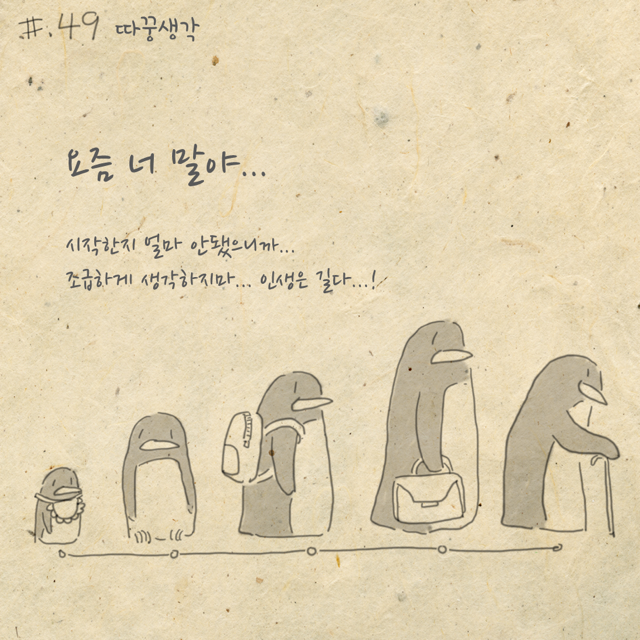 #.49 따꿍생각
요즘 너 말야...
시작한지 얼마 안됐으니까...
조급하게 생각하지마... 인생은 길다...!